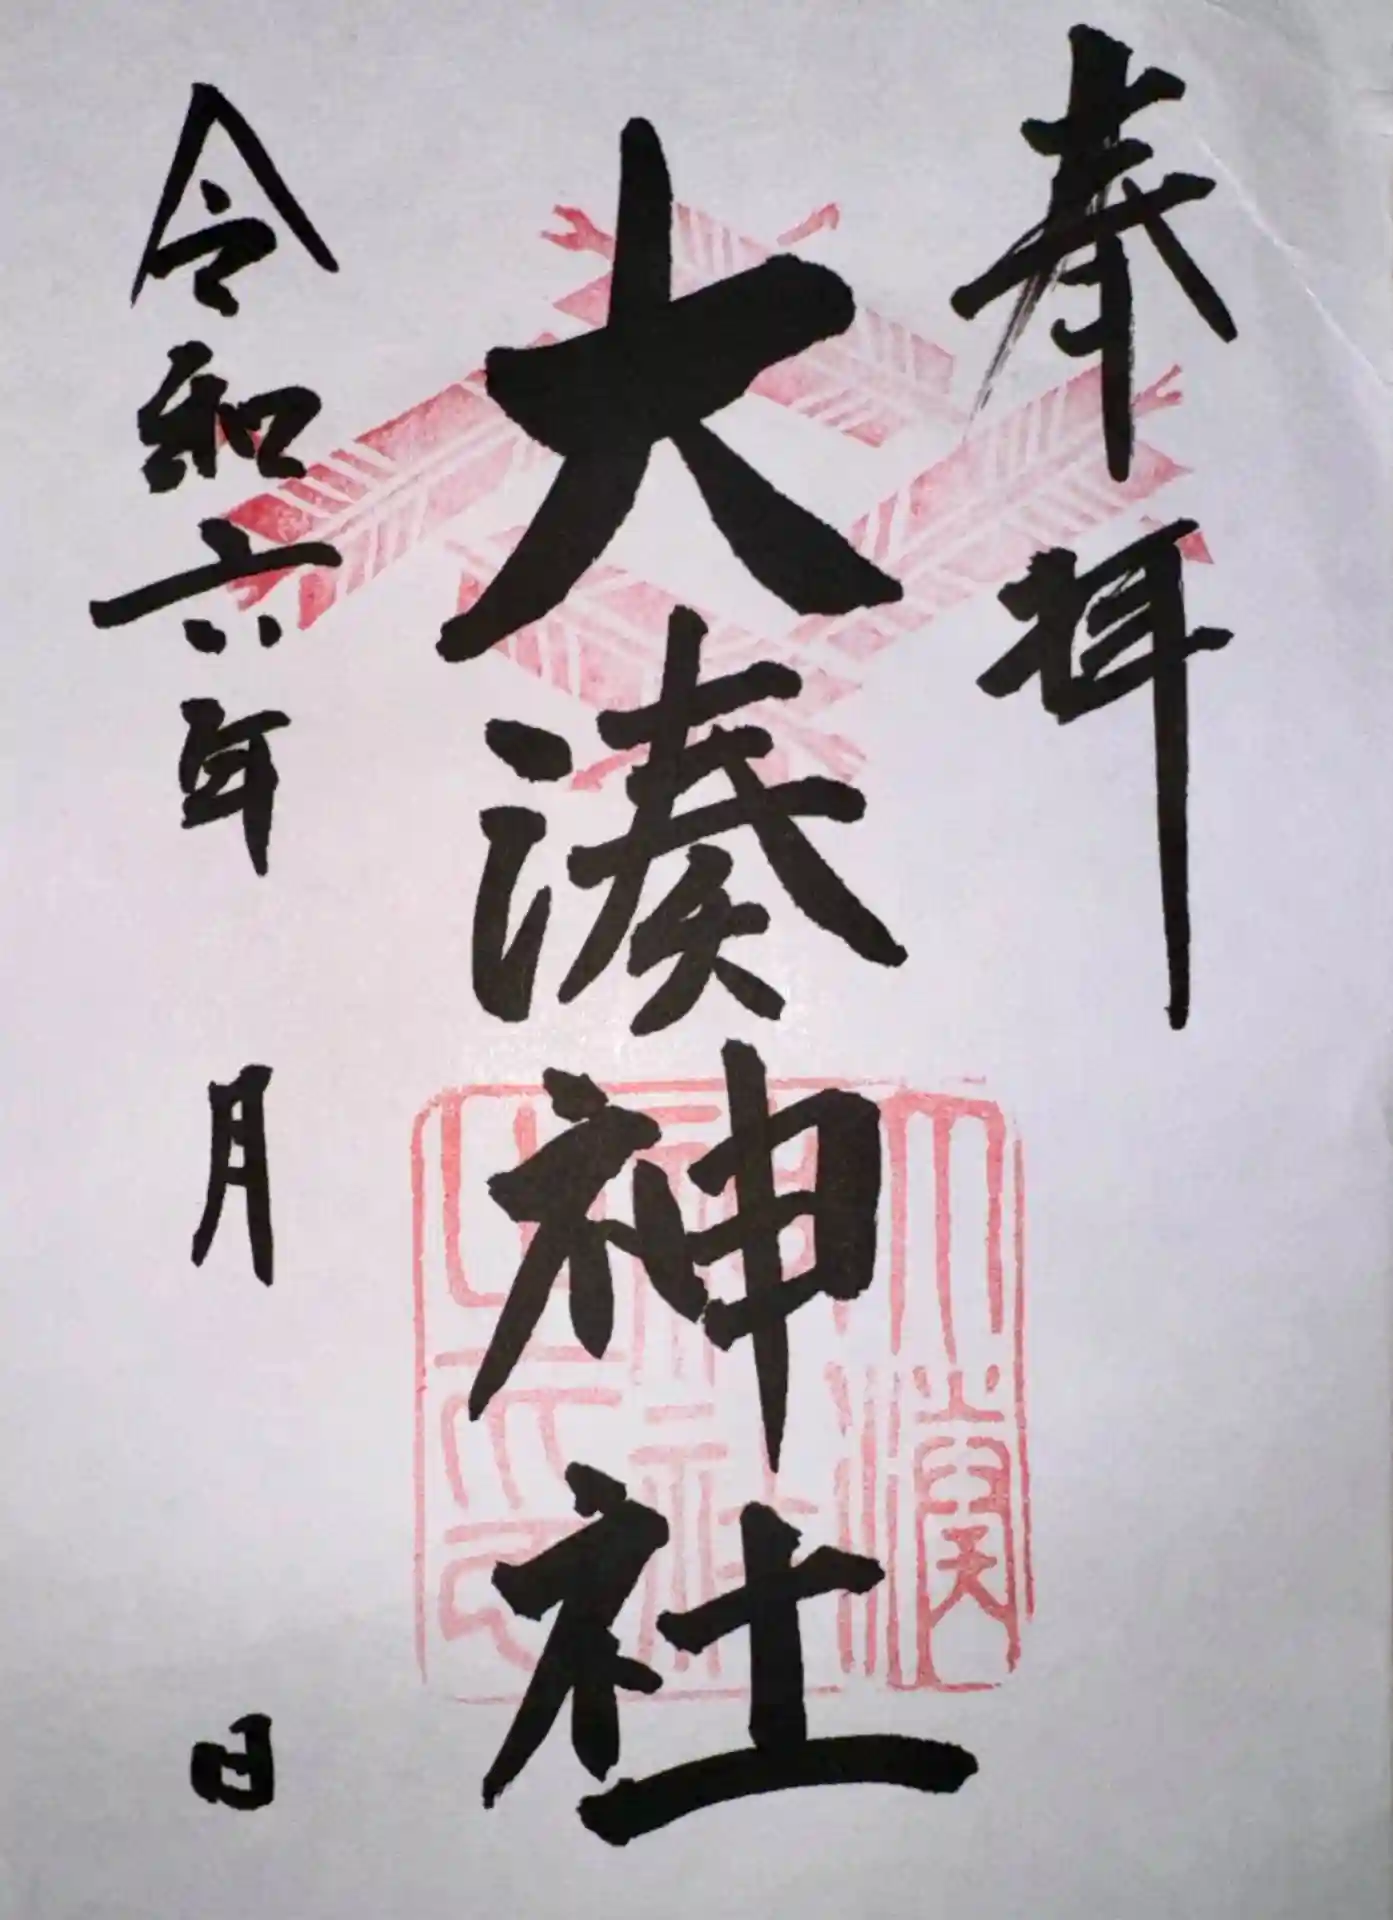 奉拝
大湊神社
大湊神社之印
令和六年　月　日